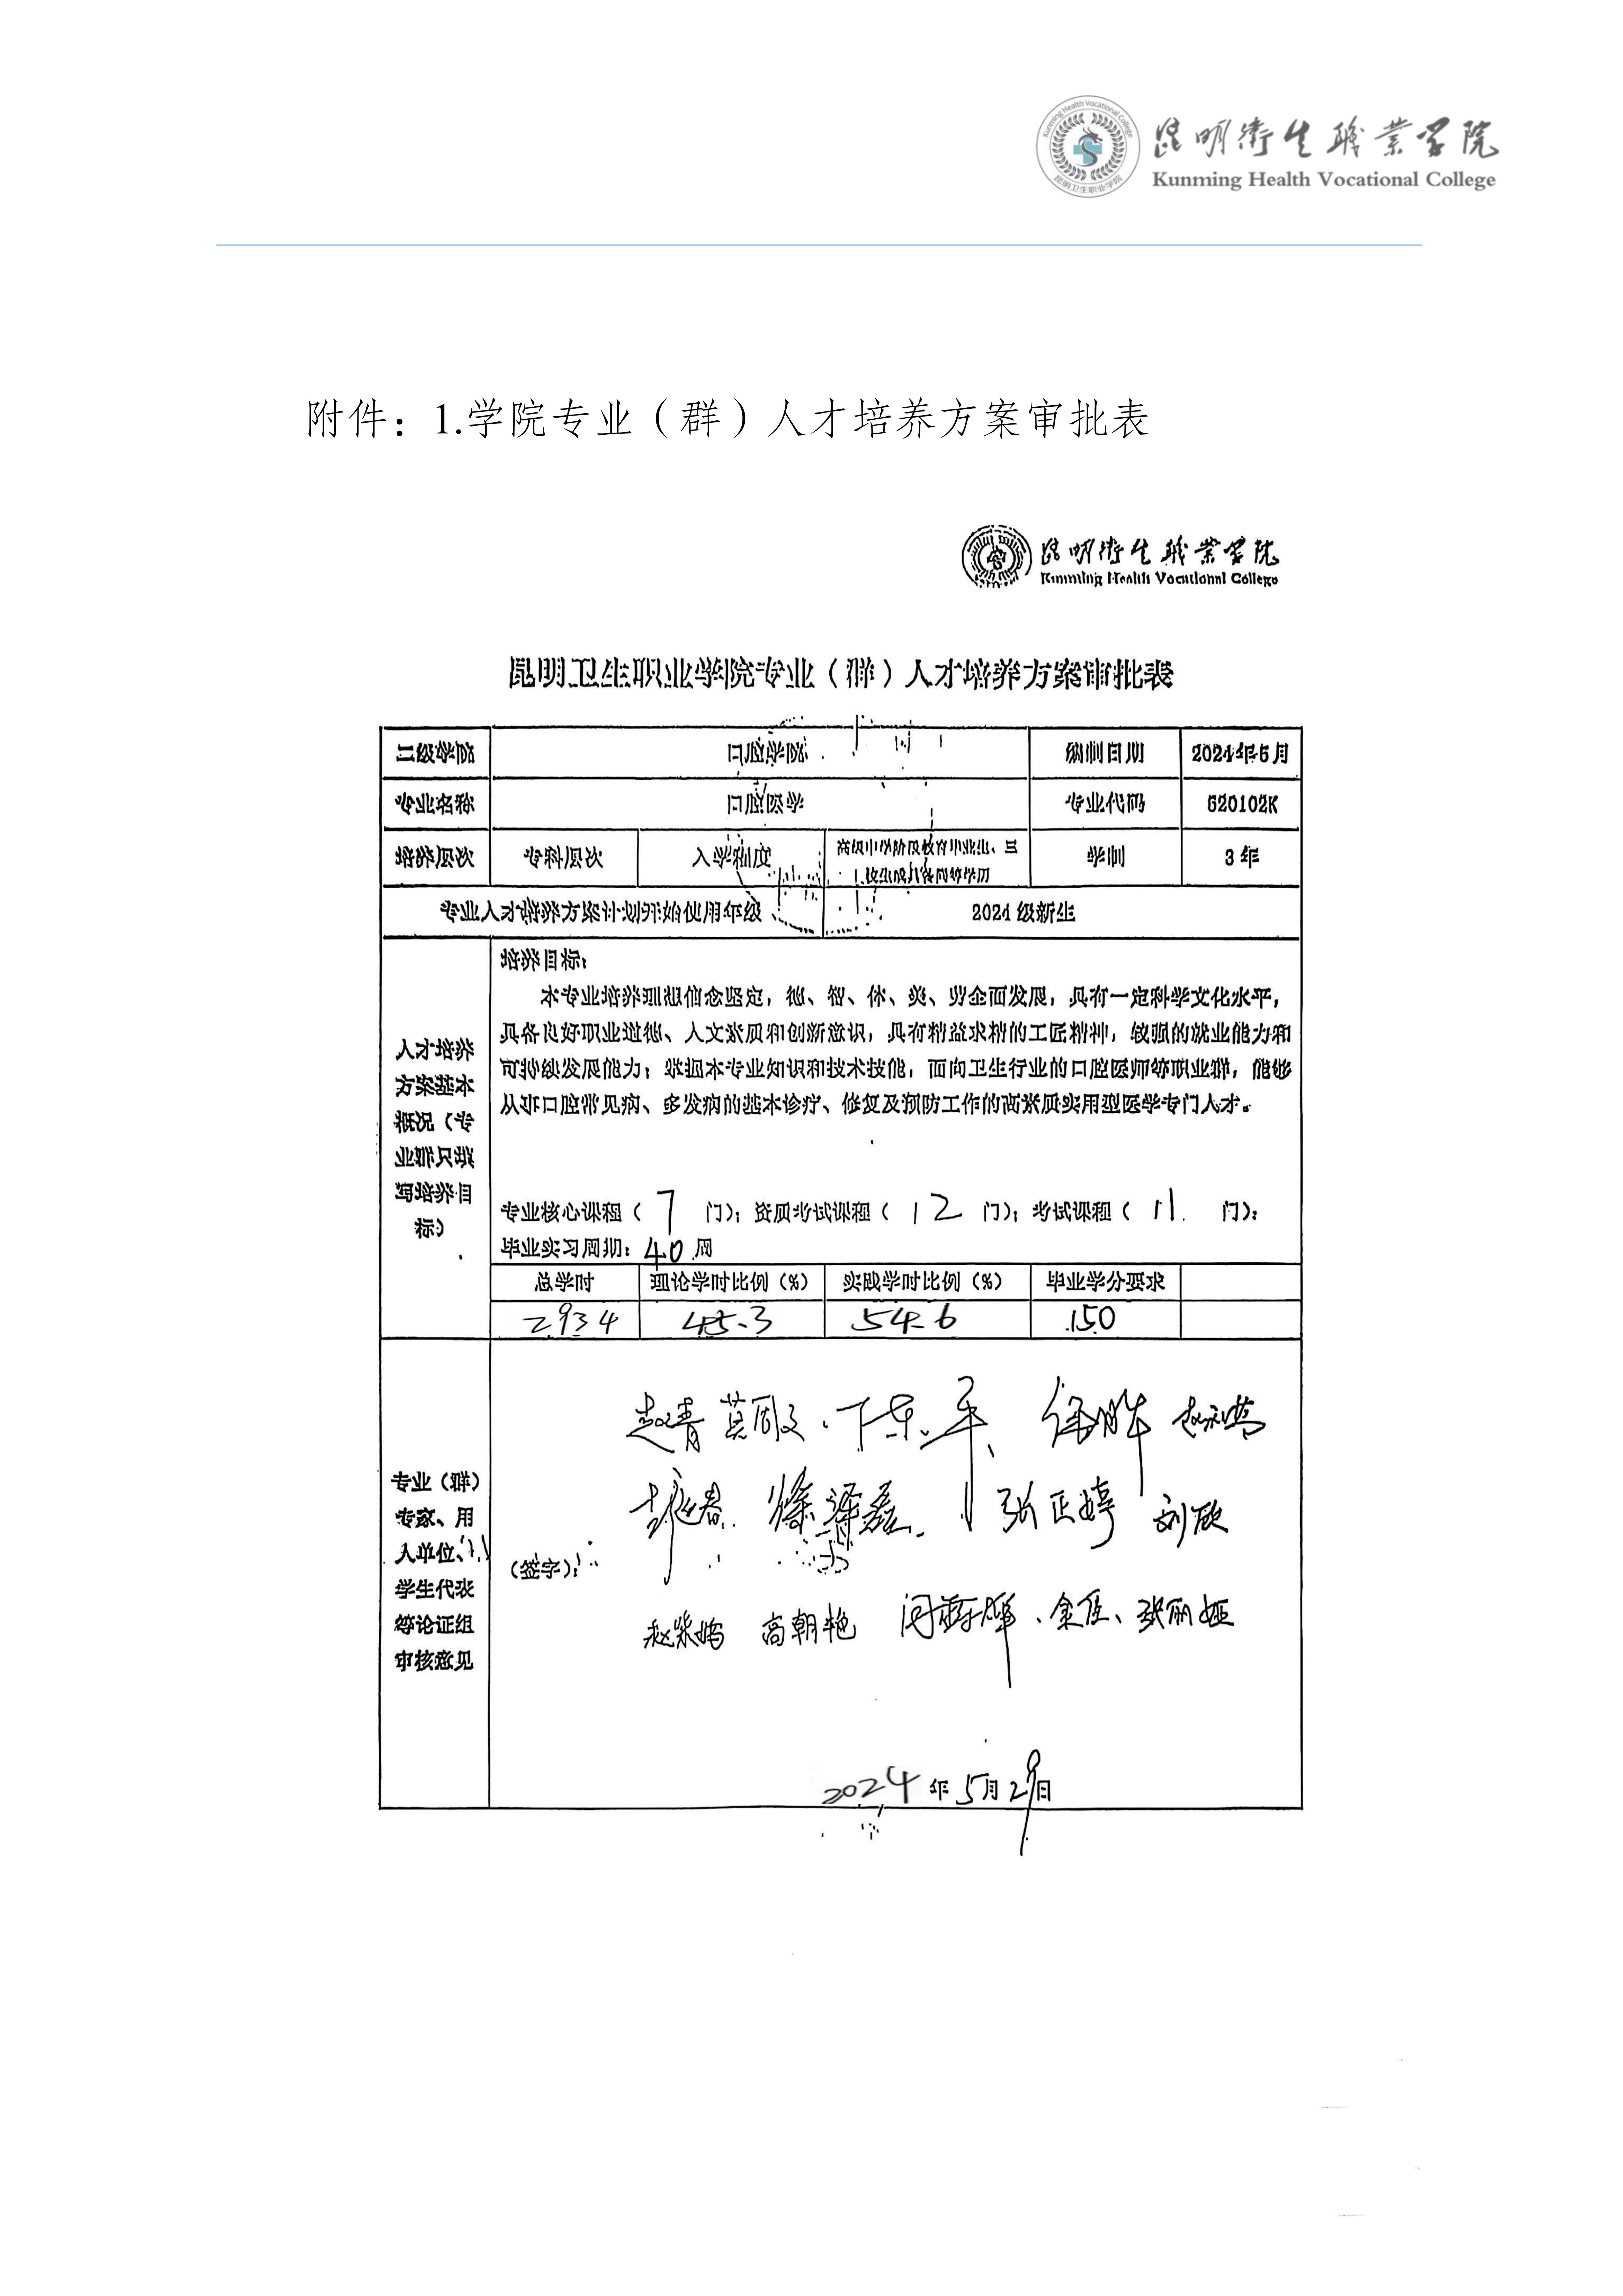 昆明衛生職業学院
Kunming Health Vocational College
附件：1.学院专业（群）人才培养方案审批表
昆明衛生職業学院
Kunming Health Vocational College
昆明卫生职业学院专业（群）人才培养方案审批表
二级学院 口腔医学院 编制日期 2024年5月
专业名称 口腔医学 专业代码 520102K
培养层次 专科层次 入学 学制 3 年
专业人才培养方案计划开始使用年级 2024 级新生
人才培养方案基本概况（专业 培养目标）
培养目标：
本专业培养理想信念坚定，德、智、体、美、劳全面发展，具有一定科学文化水平，
具备良好职业道德、人文素质和创新意识，具有精益求精的工匠精神，较强的就业能力和
可持续发展能力；掌握本专业知识和技术技能，面向卫生行业的口腔医师等职业群，能够
从事口腔常见病、多发病的基本诊疗、修复及预防工作的高素质实用型医学专门人才。
专业核心课程（ 7 门）；资质考试课程（ 12 门）；考试课程（ 11 门）；
毕业实习周期：40 周
总学时 理论学时比例（%） 实践学时比例（%） 毕业学分要求
2934 45.3 54.6 150
专业（群）
专家、用
人单位、
学生代表
等论证组
审核意见
赵青
徐泽磊 张正婷 刘欣
（签字）：
赵紫嫣 高朝艳 金佳、张丽娅
2024 年 5 月 29 日